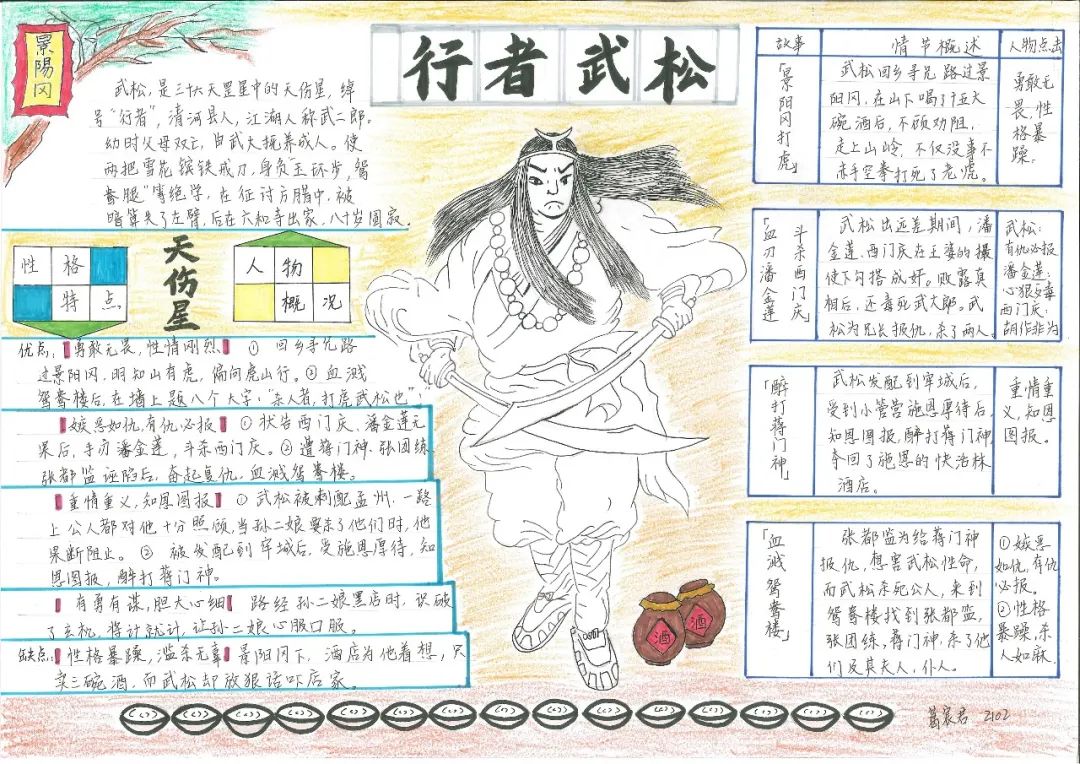 景陽冈
行者武松
武松，是三十六天罡星中的天伤星，绰
号“行者”，清河县人，江湖人称武二郎。
幼时父母双亡，由武大抚养成人。使
两把雪花镔铁戒刀，身负“玉环步，鸳
鸯腿”等绝学，在征讨方腊中，被
暗算失了左臂，后在六和寺出家，八十岁圆寂。
性格
特点
天伤星
人物
概况
优点：【勇敢无畏，性情刚烈】①回乡寻兄路
过景阳冈，明知山有虎，偏向虎山行。②血溅
鸳鸯楼后，在墙上题八个大字：“杀人者，打虎武松也”；
【嫉恶如仇，有仇必报】①状告西门庆、潘金莲无
果后，手刃潘金莲，斗杀西门庆。②遭蒋门神、张团练、
张都监诬陷后，奋起复仇，血溅鸳鸯楼。
【重情重义，知恩图报】①武松被刺配孟州，一路
上公人都对他十分照顾，当孙二娘要杀了他们时，他
果断阻止。②被发配到牢城后，受施恩厚待，知
恩图报，醉打蒋门神。
【有勇有谋，胆大心细】路经孙二娘黑店时，识破
了玄机，将计就计，让孙二娘心服口服。
缺点：【性格暴躁，滥杀无辜】景阳冈下，酒店为他着想，只
卖三碗酒，而武松却放狠话吓店家。
酒
酒
故事
情节概述
人物点击
「景阳冈打虎」
武松回乡寻兄路过景
阳冈，在山下喝了十五大
碗酒后，不顾劝阻，
走上山岭，不仅没事不
赤手空拳打死了老虎。
勇敢无
畏，性
格暴
躁。
斗杀西门庆」
「血刃潘金莲
武松出远差期间，潘
金莲、西门庆在王婆的撮
使下勾搭成奸。败露真
相后，还毒死武大郎。武
松为兄长报仇，杀了两人。
武松：
有仇必报
潘金莲：
心狠歹毒
西门庆：
胡作非为
「醉打蒋门神」
武松发配到牢城后，
受到小管营施恩厚待后，
知恩图报，醉打蒋门神，
夺回了施恩的快活林
酒店。
重情重
义，知恩
图报。
「血溅鸳鸯楼」
张都监为给蒋门神
报仇，想害武松性命，
而武松杀死公人，来到
鸳鸯楼找到张都监，
张团练，蒋门神，杀了他
们及其夫人，仆人。
①嫉恶
如仇，有仇
必报。
②性格
暴躁，杀
人如麻。
2102